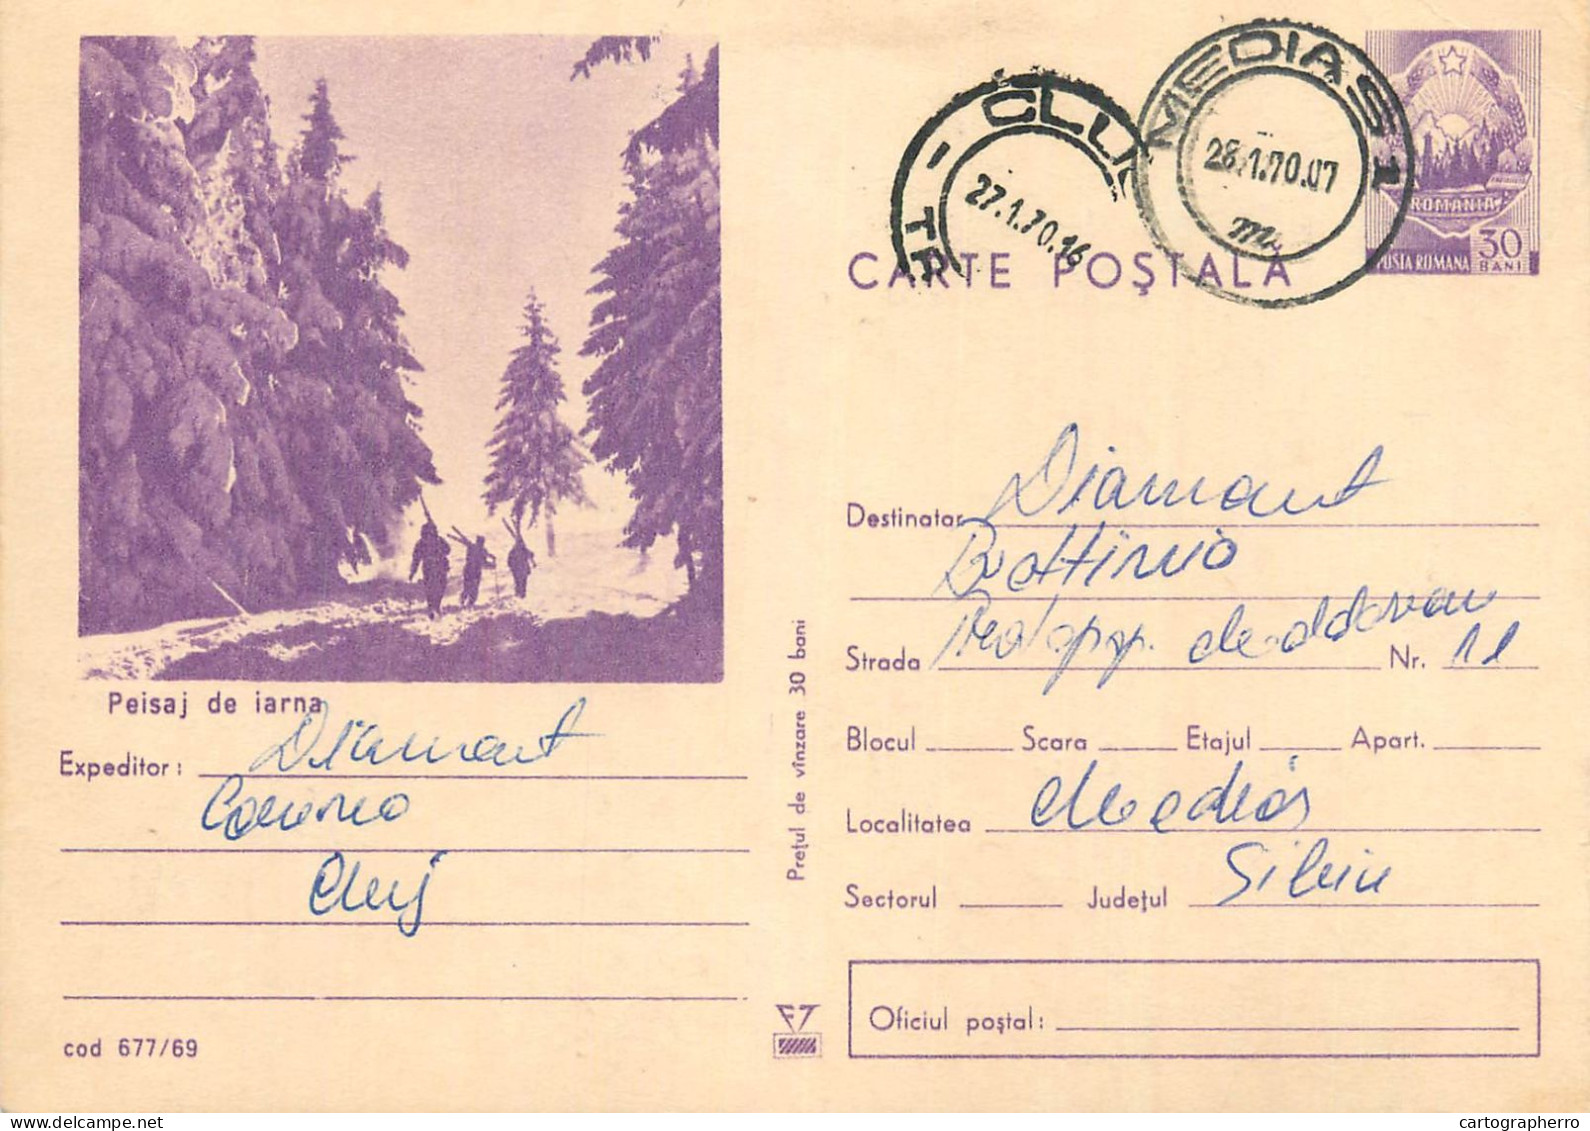 MEDIAS 1
28.1.70.07
CLUJ
- TR
27.1.70.16
ROMANIA
POSTA ROMANA
30
BANI
CARTE POȘTALĂ
Peisaj de iarna
Expeditor: Diamant
Cluj
cod 677/69
Prețul de vînzare 30 bani
Destinatar Diamant
Strada Protopop. Moldovan Nr. 11
Blocul Scara Etajul Apart.
Localitatea Mediaș
Sectorul Județul Sibiu
Oficiul poștal:
www.delcampe.net
cartographerro